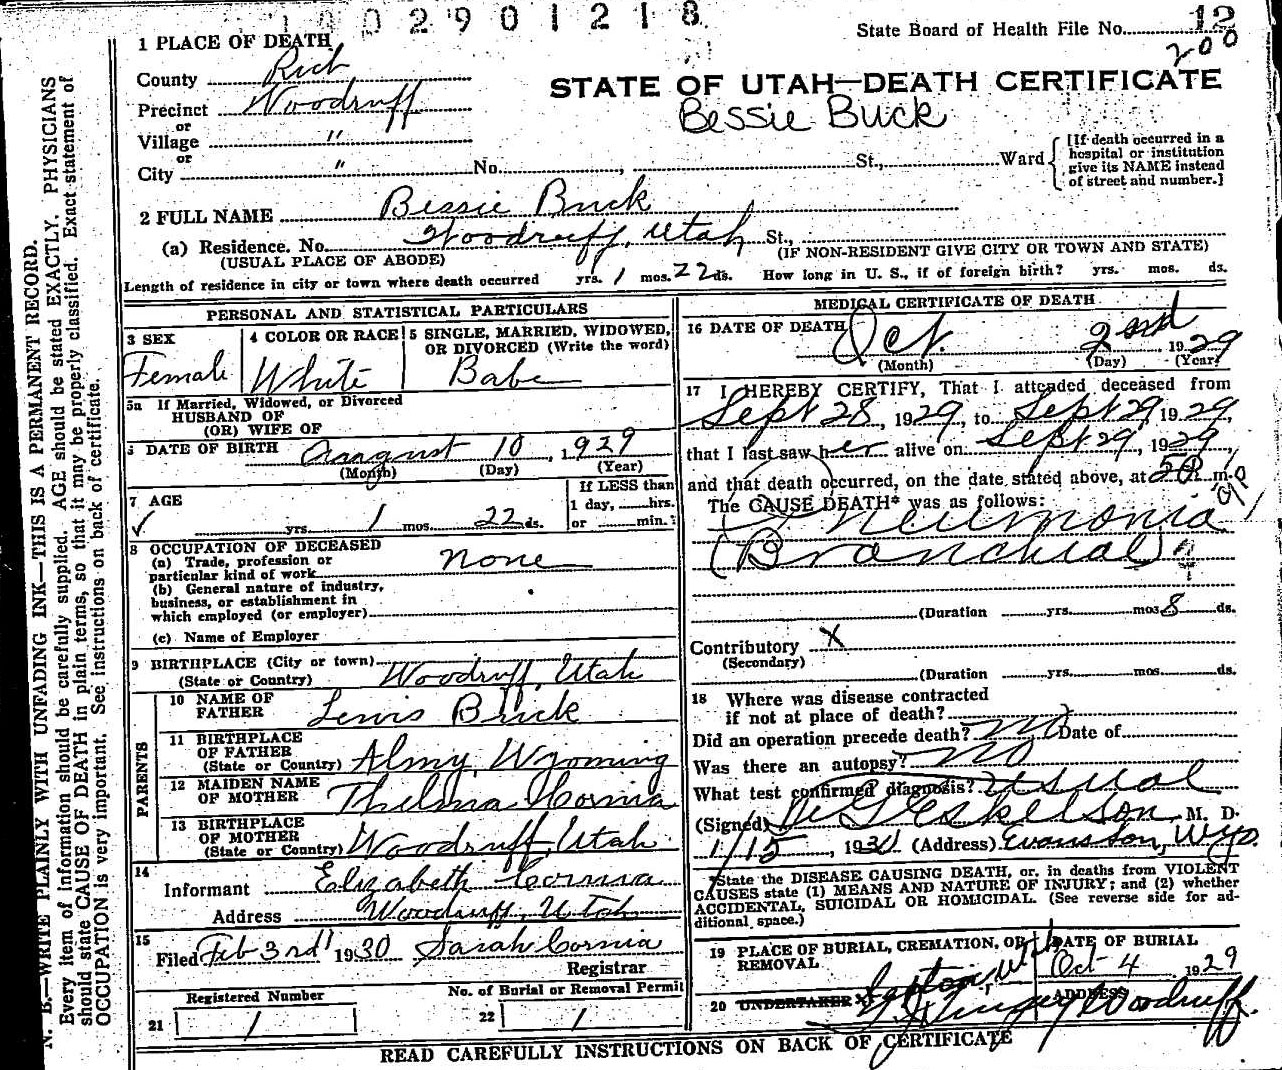 1002901218
State Board of Health File No. 12
200
1 PLACE OF DEATH
County Rich
STATE OF UTAH—DEATH CERTIFICATE
Precinct Woodruff
Bessie Buck
or
Village "
or
City " No. , St., Ward
[If death occurred in a
hospital or institution
give its NAME instead
of street and number.]
2 FULL NAME Bessie Buck
(a) Residence. No. Woodruff, Utah St.,
(USUAL PLACE OF ABODE) (IF NON-RESIDENT GIVE CITY OR TOWN AND STATE)
Length of residence in city or town where death occurred yrs. 1 mos. 22 ds. How long in U. S., if of foreign birth? yrs. mos. ds.
PERSONAL AND STATISTICAL PARTICULARS
3 SEX 4 COLOR OR RACE 5 SINGLE, MARRIED, WIDOWED,
OR DIVORCED (Write the word)
Female White Babe
5a If Married, Widowed, or Divorced
HUSBAND OF
(OR) WIFE OF
DATE OF BIRTH August 10, 1929
(Month) (Day) (Year)
7 AGE If LESS than
1 day, hrs.
yrs. 1 mos. 22 ds. or min.
8 OCCUPATION OF DECEASED
(a) Trade, profession or
particular kind of work none
(b) General nature of industry,
business, or establishment in
which employed (or employer)
(c) Name of Employer
9 BIRTHPLACE (City or town)
(State or Country) Woodruff, Utah
PARENTS
10 NAME OF
FATHER Lewis Buck
11 BIRTHPLACE
OF FATHER
(State or Country) Almy, Wyoming
12 MAIDEN NAME
OF MOTHER Thelma Cornia
13 BIRTHPLACE
OF MOTHER
(State or Country) Woodruff, Utah
14
Informant Elizabeth Cornia
Address Woodruff, Utah
15
Filed Feb 3rd 1930 Sarah Cornia
Registrar
Registered Number No. of Burial or Removal Permit
21 1 22 1
MEDICAL CERTIFICATE OF DEATH
16 DATE OF DEATH
Oct. 2nd 1929
(Month) (Day) (Year)
17 I HEREBY CERTIFY, That I attended deceased from
Sept 28, 1929, to Sept 29, 1929,
that I last saw her alive on Sept 29, 1929,
and that death occurred, on the date stated above, at 5 P m.
The CAUSE DEATH* was as follows:
Pneumonia
(Bronchial)
(Duration yrs. mos. 8 ds.
Contributory X
(Secondary)
(Duration yrs. mos. ds.
18 Where was disease contracted
if not at place of death?
Did an operation precede death? no Date of
Was there an autopsy? no
What test confirmed diagnosis? Usual
(Signed) Eskelson, M. D.
1/15, 1930 (Address) Evanston, Wyo.
*State the DISEASE CAUSING DEATH, or, in deaths from VIOLENT
CAUSES state (1) MEANS AND NATURE OF INJURY; and (2) whether
ACCIDENTAL, SUICIDAL OR HOMICIDAL. (See reverse side for ad-
ditional space.)
19 PLACE OF BURIAL, CREMATION, OR
REMOVAL
DATE OF BURIAL
Oct 4 1929
20 UNDERTAKER ADDRESS
Woodruff
READ CAREFULLY INSTRUCTIONS ON BACK OF CERTIFICATE
N. B.—WRITE PLAINLY WITH UNFADING INK—THIS IS A PERMANENT RECORD.
Every item of information should be carefully supplied. AGE should be stated EXACTLY. PHYSICIANS
should state CAUSE OF DEATH in plain terms, so that it may be properly classified. Exact statement of
OCCUPATION is very important. See instructions on back of certificate.